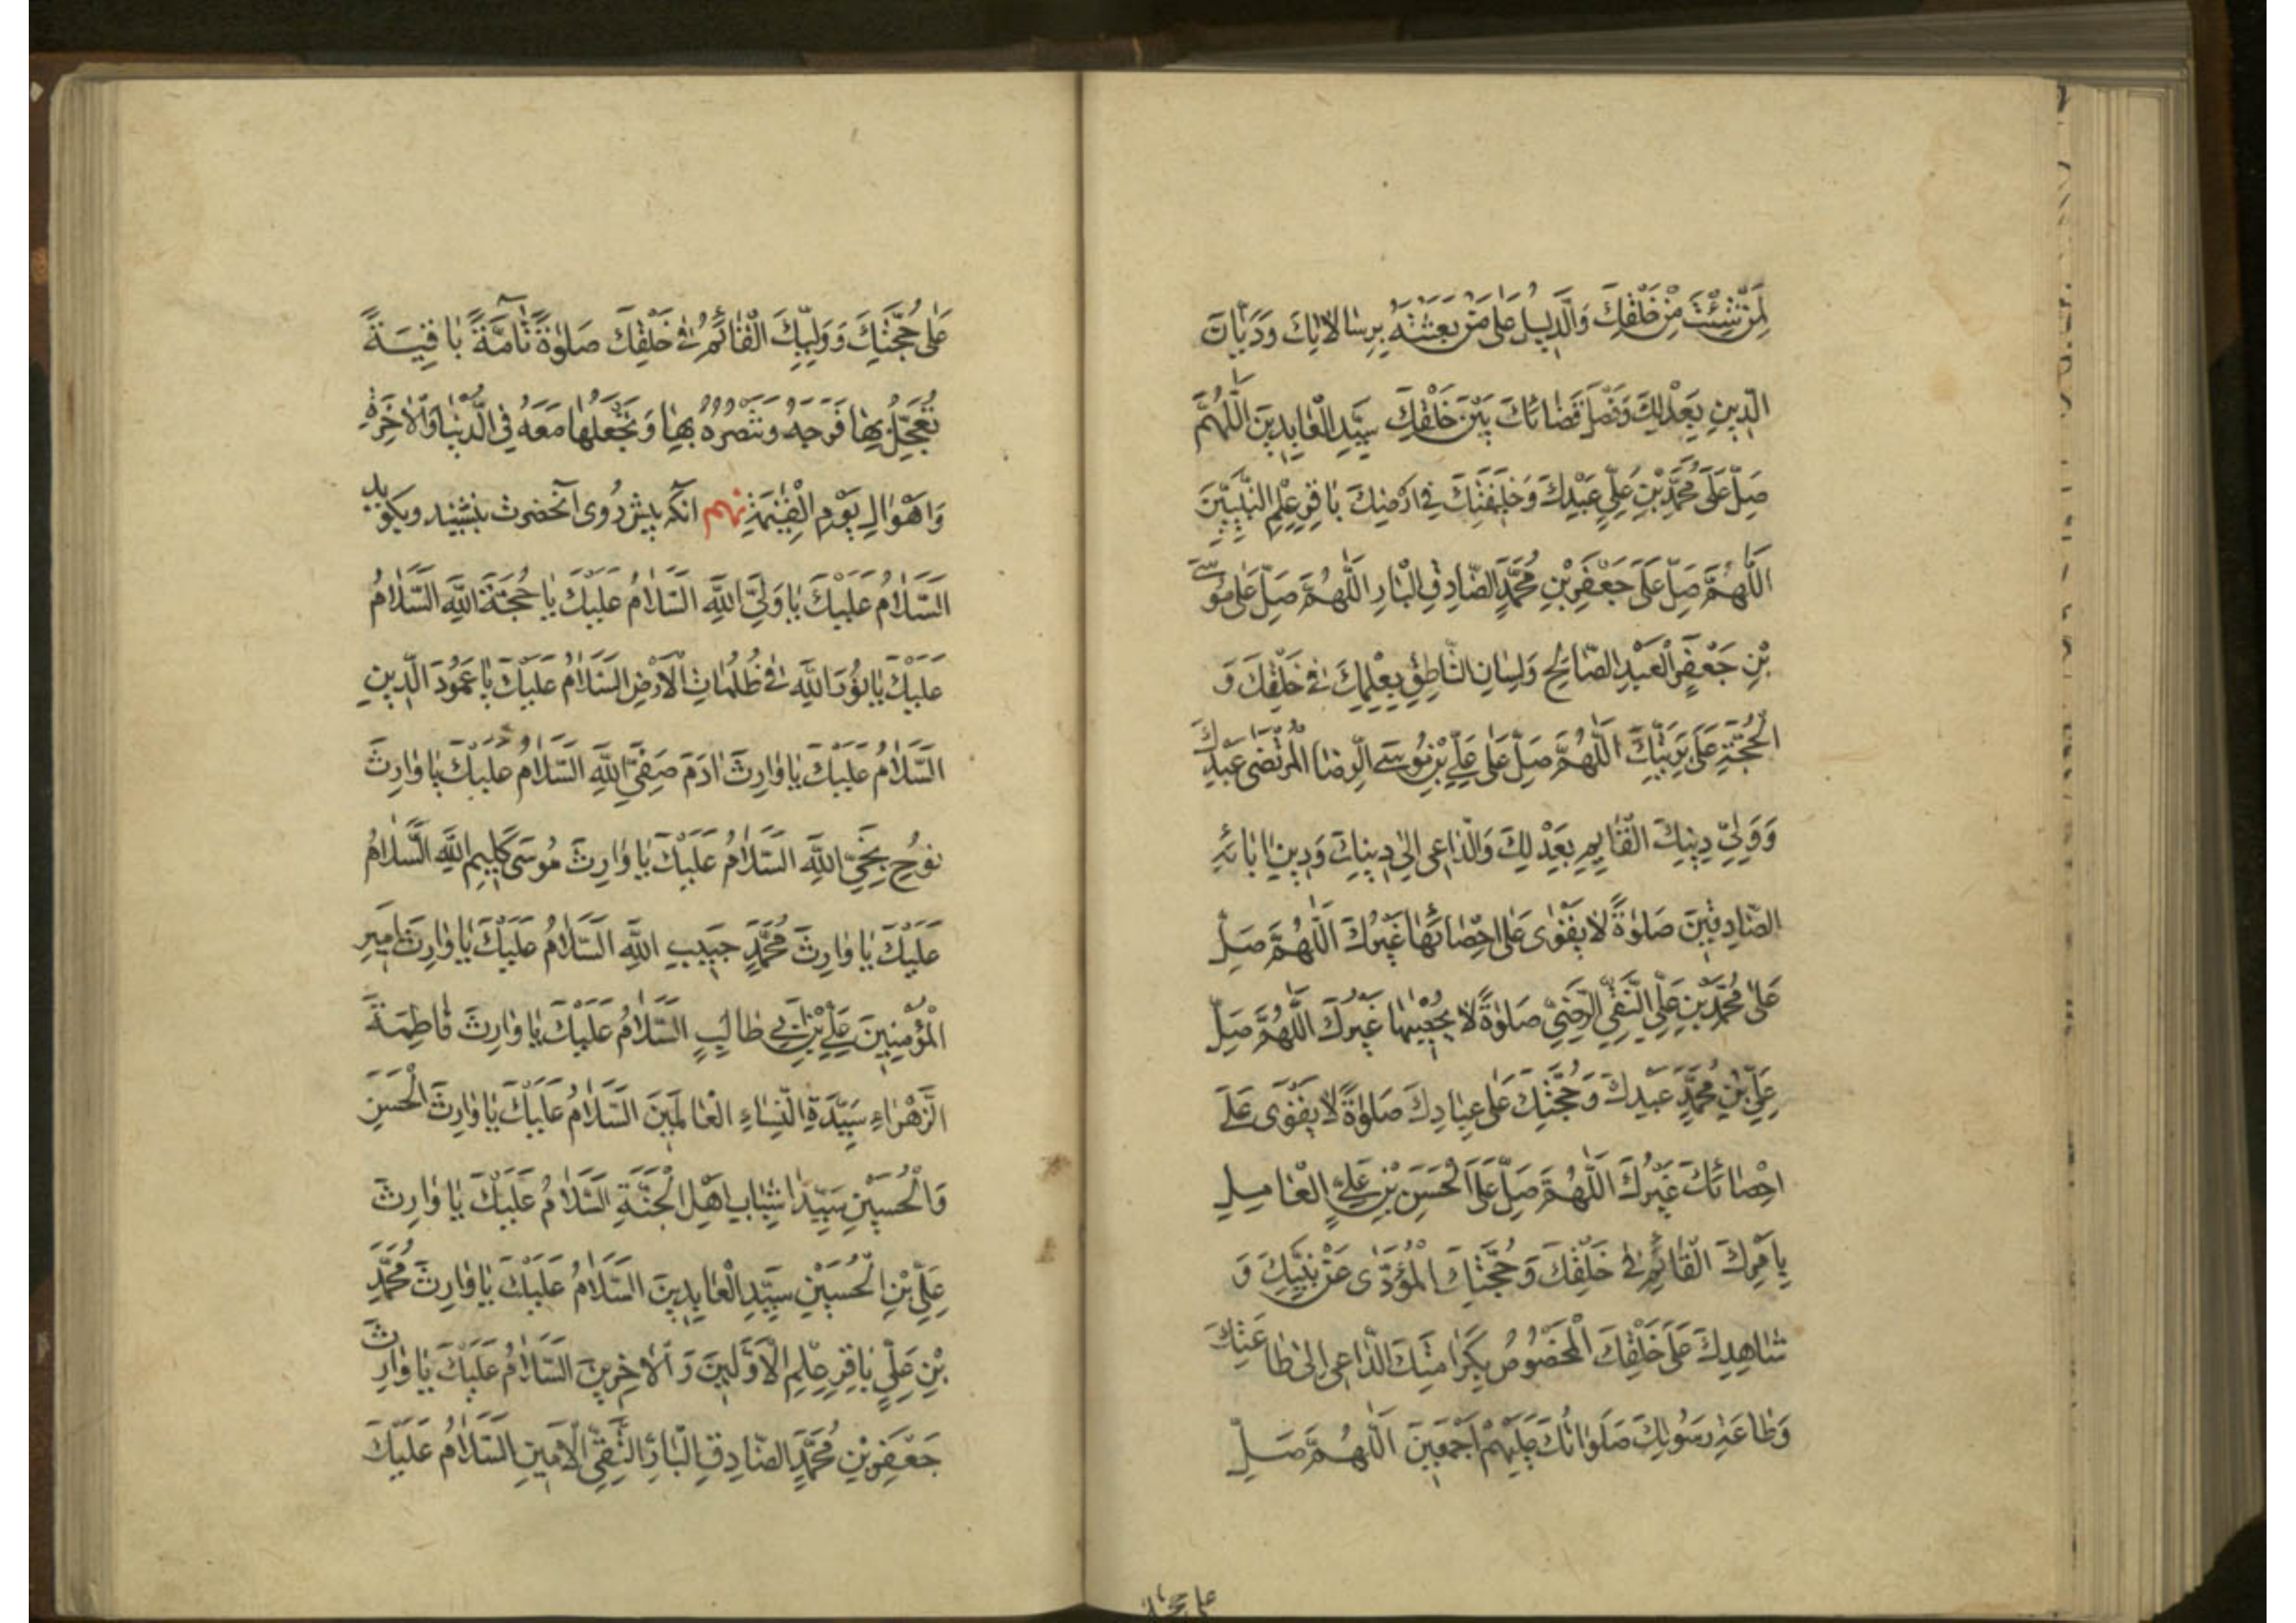 لِمَنْ شِئْتَ مِنْ خَلْقِكَ وَالدَّلِيلِ عَلَى مَنْ بَعَثْتَهُ بِرِسَالَاتِكَ وَدَيَّانِ
الدِّينِ بِعَدْلِكَ وَفَصْلِ قَضَائِكَ بَيْنَ خَلْقِكَ سَيِّدِ الْعَابِدِينَ اَللّٰهُمَّ
صَلِّ عَلَى مُحَمَّدِ بْنِ عَلِيٍّ عَبْدِكَ وَخَلِيفَتِكَ فِي اَرْضِكَ بَاقِرِ عِلْمِ النَّبِيِّينَ
اَللّٰهُمَّ صَلِّ عَلَى جَعْفَرِ بْنِ مُحَمَّدٍ الصَّادِقِ الْبَارِ اَللّٰهُمَّ صَلِّ عَلَى مُوسَى
بْنِ جَعْفَرٍ الْعَبْدِ الصَّالِحِ وَلِسَانِ النَّاطِقِ بِعِلْمِكَ فِي خَلْقِكَ وَ
الْحُجَّةِ عَلَى بَرِيَّتِكَ اَللّٰهُمَّ صَلِّ عَلَى عَلِيِّ بْنِ مُوسَى الرِّضَا الْمُرْتَضَى عَبْدِكَ
وَوَلِيِّ دِينِكَ الْقَايِمِ بِعَدْلِكَ وَالدَّاعِي اِلَى دِينِكَ وَدِينِ ابَائِهِ
الصَّادِقِينَ صَلوٰةً لَا يَقْوٰى عَلَى اِحْصَائِهَا غَيْرُكَ اَللّٰهُمَّ صَلِّ
عَلَى مُحَمَّدِ بْنِ عَلِيٍّ التَّقِيِّ الرَّضِيِّ صَلوٰةً لَا يُحْصِيهَا غَيْرُكَ اَللّٰهُمَّ صَلِّ
عَلِيِّ بْنِ مُحَمَّدٍ عَبْدِكَ وَحُجَّتِكَ عَلَى عِبَادِكَ صَلوٰةً لَا يَقْوٰى عَلَى
اِحْصَائِكَ غَيْرُكَ اَللّٰهُمَّ صَلِّ عَلَى الْحَسَنِ بْنِ عَلِيٍّ الْعَامِلِ
بِاَمْرِكَ الْقَائِمِ فِي خَلْقِكَ وَحُجَّتِكَ الْمُؤَدِّى عَنْ نَبِيِّكَ وَ
شَاهِدِكَ عَلَى خَلْقِكَ الْمَخْصُوصِ بِكَرَامَتِكَ الدَّاعِي اِلَى طَاعَتِكَ
وَطَاعَةِ رَسُولِكَ صَلَوَاتُكَ عَلَيْهِمْ اَجْمَعِينَ اَللّٰهُمَّ صَلِّ
على حجتك
عَلَى حُجَّتِكَ وَوَلِيِّكَ الْقَائِمُ فِي خَلْقِكَ صَلوٰةً تَآمَّةً بَاقِيَةً
تُعَجِّلُ بِهَا فَرَجَهُ وَتَنْصُرُهُ بِهَا وَتَجْعَلُهَا مَعَهُ فِي الدُّنْيَا وَالْاٰخِرَةِ
وَاَهْوَالِ يَوْمِ الْقِيٰمَةِ نهم انكه پيش روى انحضرت بنشيند وبكويد
اَلسَّلَامُ عَلَيْكَ يَا وَلِيَّ اللّٰهِ السَّلَامُ عَلَيْكَ يَا حُجَّةَ اللّٰهِ السَّلَامُ
عَلَيْكَ يَا نُورَ اللّٰهِ فِي ظُلُمَاتِ الْاَرْضِ السَّلَامُ عَلَيْكَ يَا عَمُودَ الدِّينِ
السَّلَامُ عَلَيْكَ يَا وَارِثَ اٰدَمَ صَفِيِّ اللّٰهِ السَّلَامُ عَلَيْكَ يَا وَارِثَ
نُوحٍ نَجِيِّ اللّٰهِ السَّلَامُ عَلَيْكَ يَا وَارِثَ مُوسَى كَلِيمِ اللّٰهِ السَّلَامُ
عَلَيْكَ يَا وَارِثَ مُحَمَّدٍ حَبِيبِ اللّٰهِ السَّلَامُ عَلَيْكَ يَا وَارِثَ اَمِيرِ
الْمُؤْمِنِينَ عَلِيِّ بْنِ اَبِي طَالِبٍ السَّلَامُ عَلَيْكَ يَا وَارِثَ فَاطِمَةَ
الزَّهْرَاءِ سَيِّدَةِ النِّسَاءِ الْعَالَمِينَ السَّلَامُ عَلَيْكَ يَا وَارِثَ الْحَسَنِ
وَالْحُسَيْنِ سَيِّدَا شَبَابِ اَهْلِ الْجَنَّةِ السَّلَامُ عَلَيْكَ يَا وَارِثَ
عَلِيِّ بْنِ الْحُسَيْنِ سَيِّدِ الْعَابِدِينَ السَّلَامُ عَلَيْكَ يَا وَارِثَ مُحَمَّدِ
بْنِ عَلِيٍّ بَاقِرِ عِلْمِ الْاَوَّلِينَ وَالْاٰخِرِينَ السَّلَامُ عَلَيْكَ يَا وَارِثَ
جَعْفَرِ بْنِ مُحَمَّدٍ الصَّادِقِ الْبَارِّ التَّقِيِّ الْاَمِينِ السَّلَامُ عَلَيْكَ